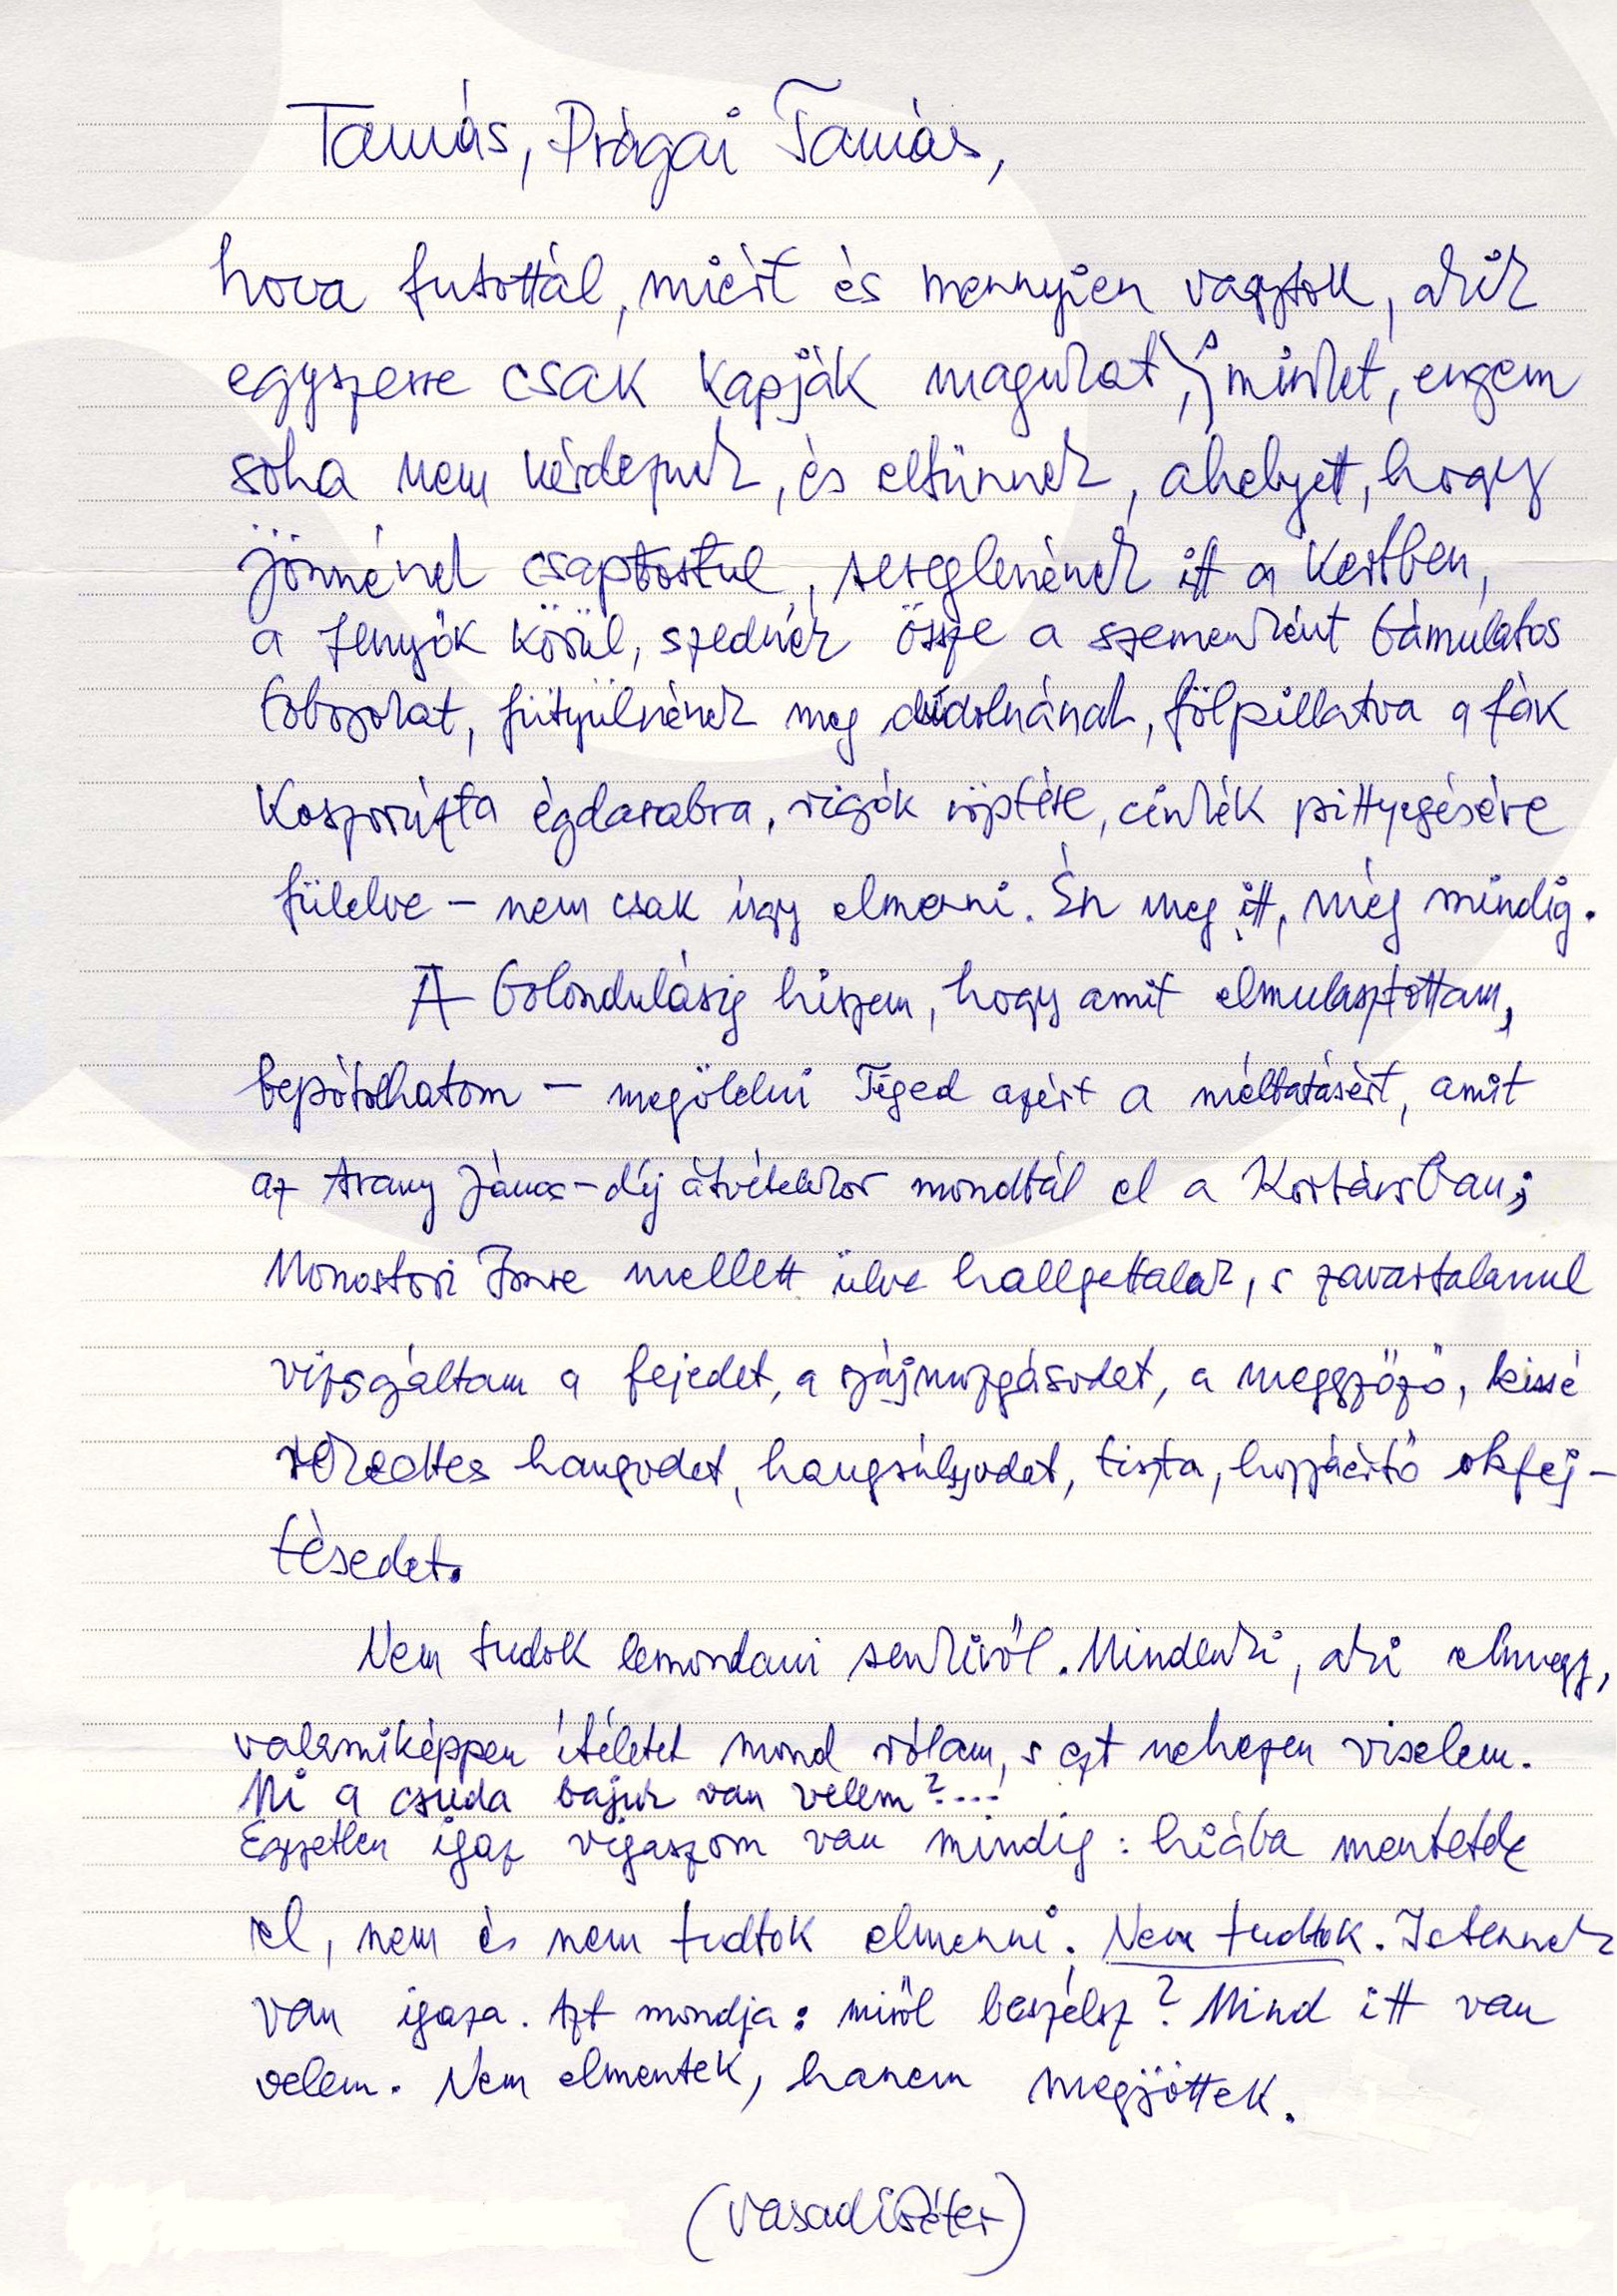 Tamás, Prágai Tamás,
hova futottál, miért és mennyien vagytok, akik
egyszerre csak kapják magukat, minket, engem
soha nem kérdeznek, és eltűnnek, ahelyet, hogy
jönnének csapatostul, sereglenének itt a kertben,
a fenyők körül, szednék össze a szemenként bámulatos
tobozokat, fütyülnének meg dúdolnának, fölpillatva a fák
koszorúzta égdarabra, rigók röptére, cinkék pittyegésére
fülelve – nem csak úgy elmenni. Én meg itt, még mindig.
A bolondulásig hiszem, hogy amit elmulasztottam,
bepótolhatom – megölelni Téged azért a méltatásért, amit
az Arany János-díj átvételekor mondtál el a Kortársban;
Monostori Imre mellett ülve hallgattalak, s zavartalanul
vizsgáltam a fejedet, a szájmozgásodat, a meggyőző, kissé
rekedtes hangodat, hangsúlyodat, tiszta, hozzáértő okfej-
tésedet.
Nem tudok lemondani senkiről. Mindenki, aki elmegy,
valamiképpen ítéletet mond rólam, s ezt nehezen viselem.
Mi a csuda bajuk van velem?...
Egyetlen igaz vigaszom van mindig: hiába mentetek
el, nem és nem tudtok elmenni. Nem tudtok. Istennek
van igaza. Azt mondja: miről beszélsz? Mind itt van
velem. Nem elmentek, hanem megjöttek.
(Vasadi Péter)